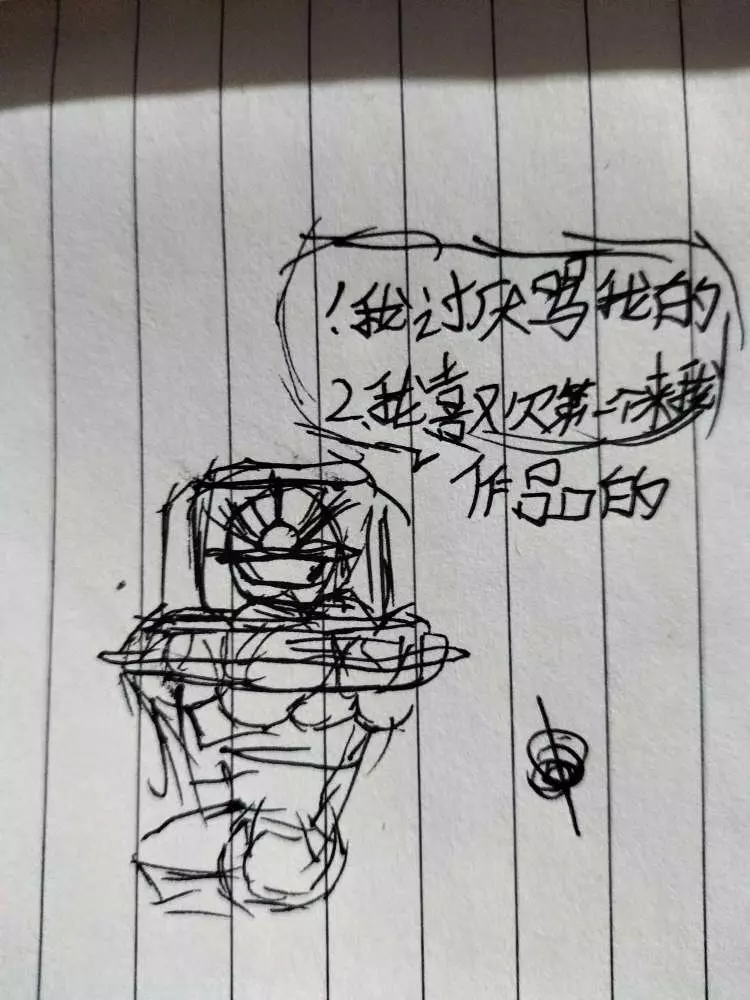 !我讨厌骂我的
2.我喜欢第一个来我
作品的